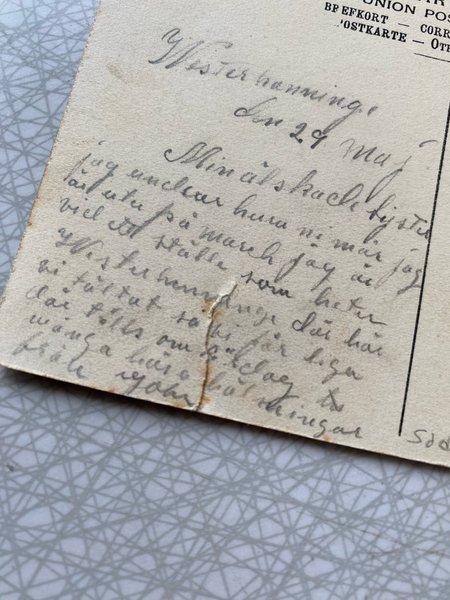 UNION POS
BREFKORT — CORR
POSTKARTE — OTB
Westerhanninge
den 29 Maj
Min älskade syster
jag undrar hura ni mår jag
är ute på march jag är
vid ett ställe som heter
Westerhanninge där har
vi tältat så vi får liga
där tills om
många kära hälsningar
från John